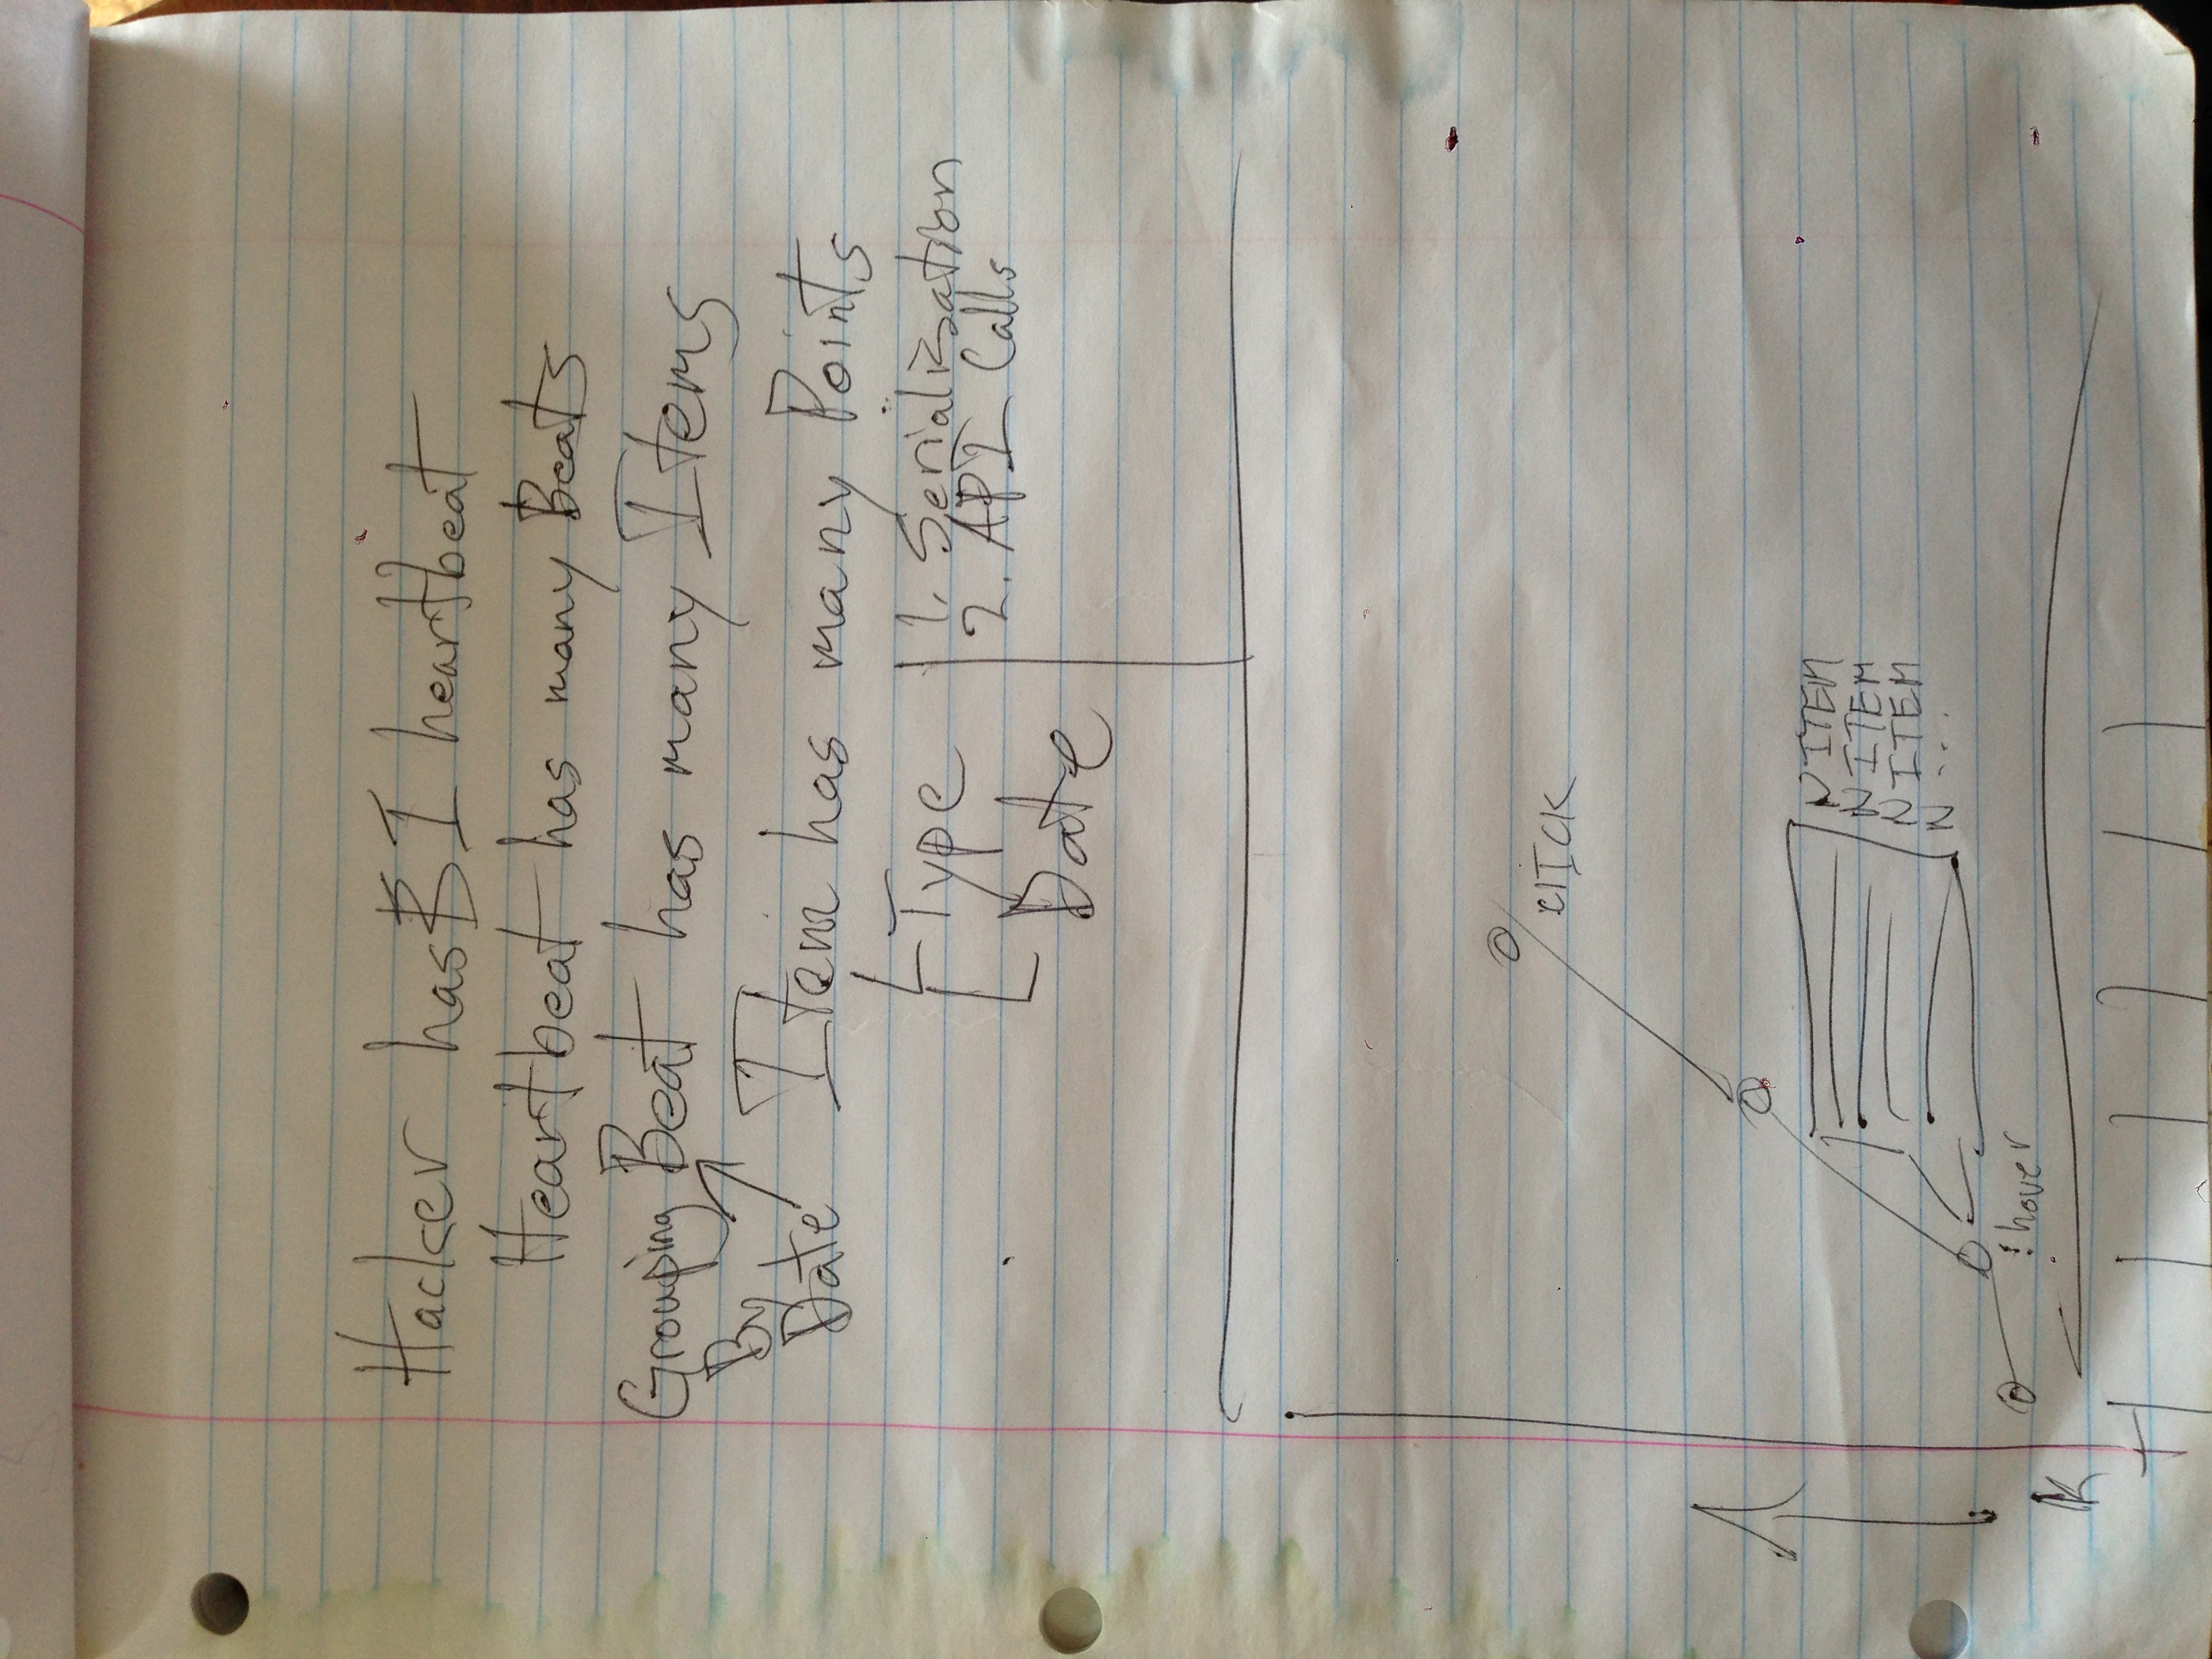 Hacker has 1 heartbeat
Heartbeat has many Beats
Grouping Beat has many Items
By
Date Item has many Points
Type
Date
1. Serialization
2. API Calls
clICK
N ITEM
N ITEM
N ITEM
N ...
:hover
K